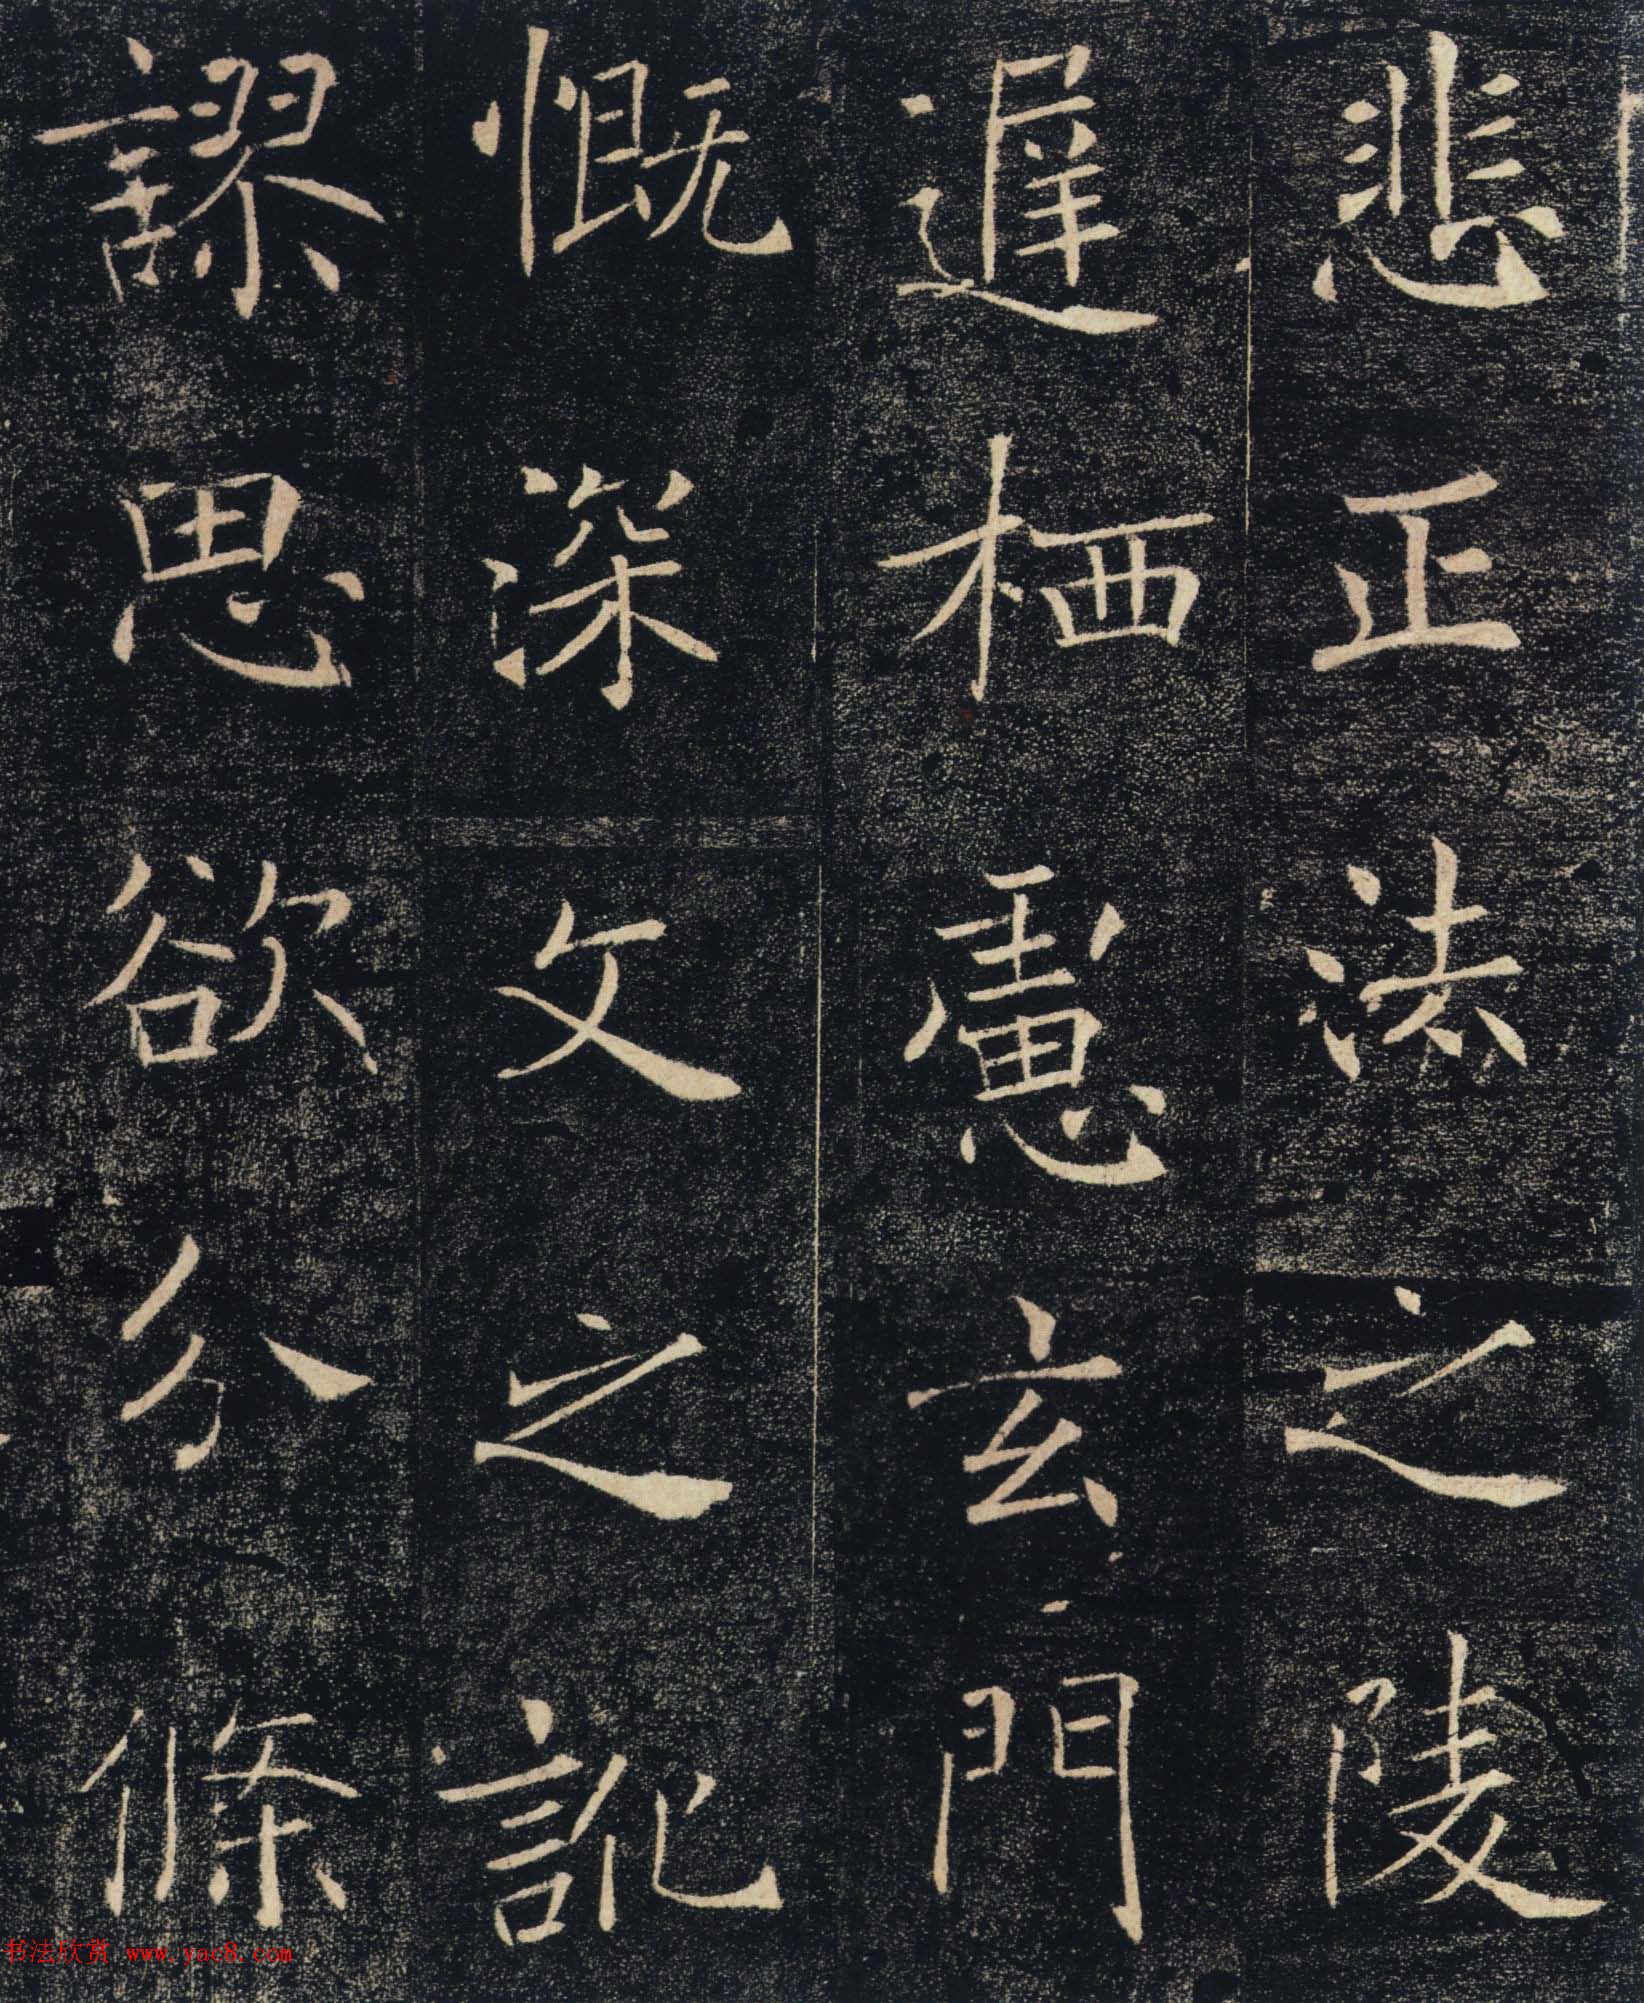 悲正法之陵
遲栖慮玄門
慨深文之訛
謬思欲分條
书法欣赏 www.yac8.com